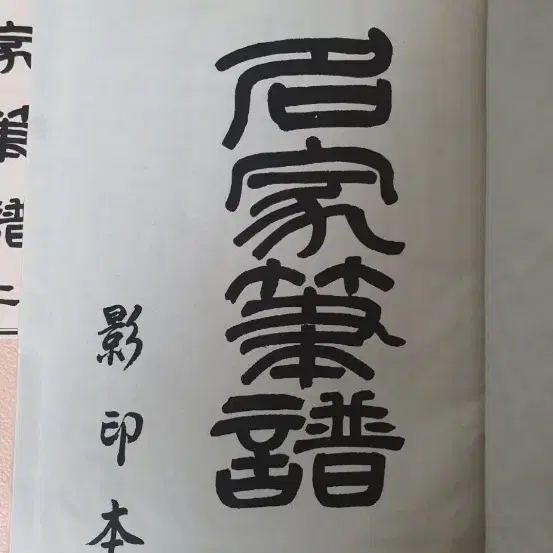 名家筆譜
影印本
家筆譜二